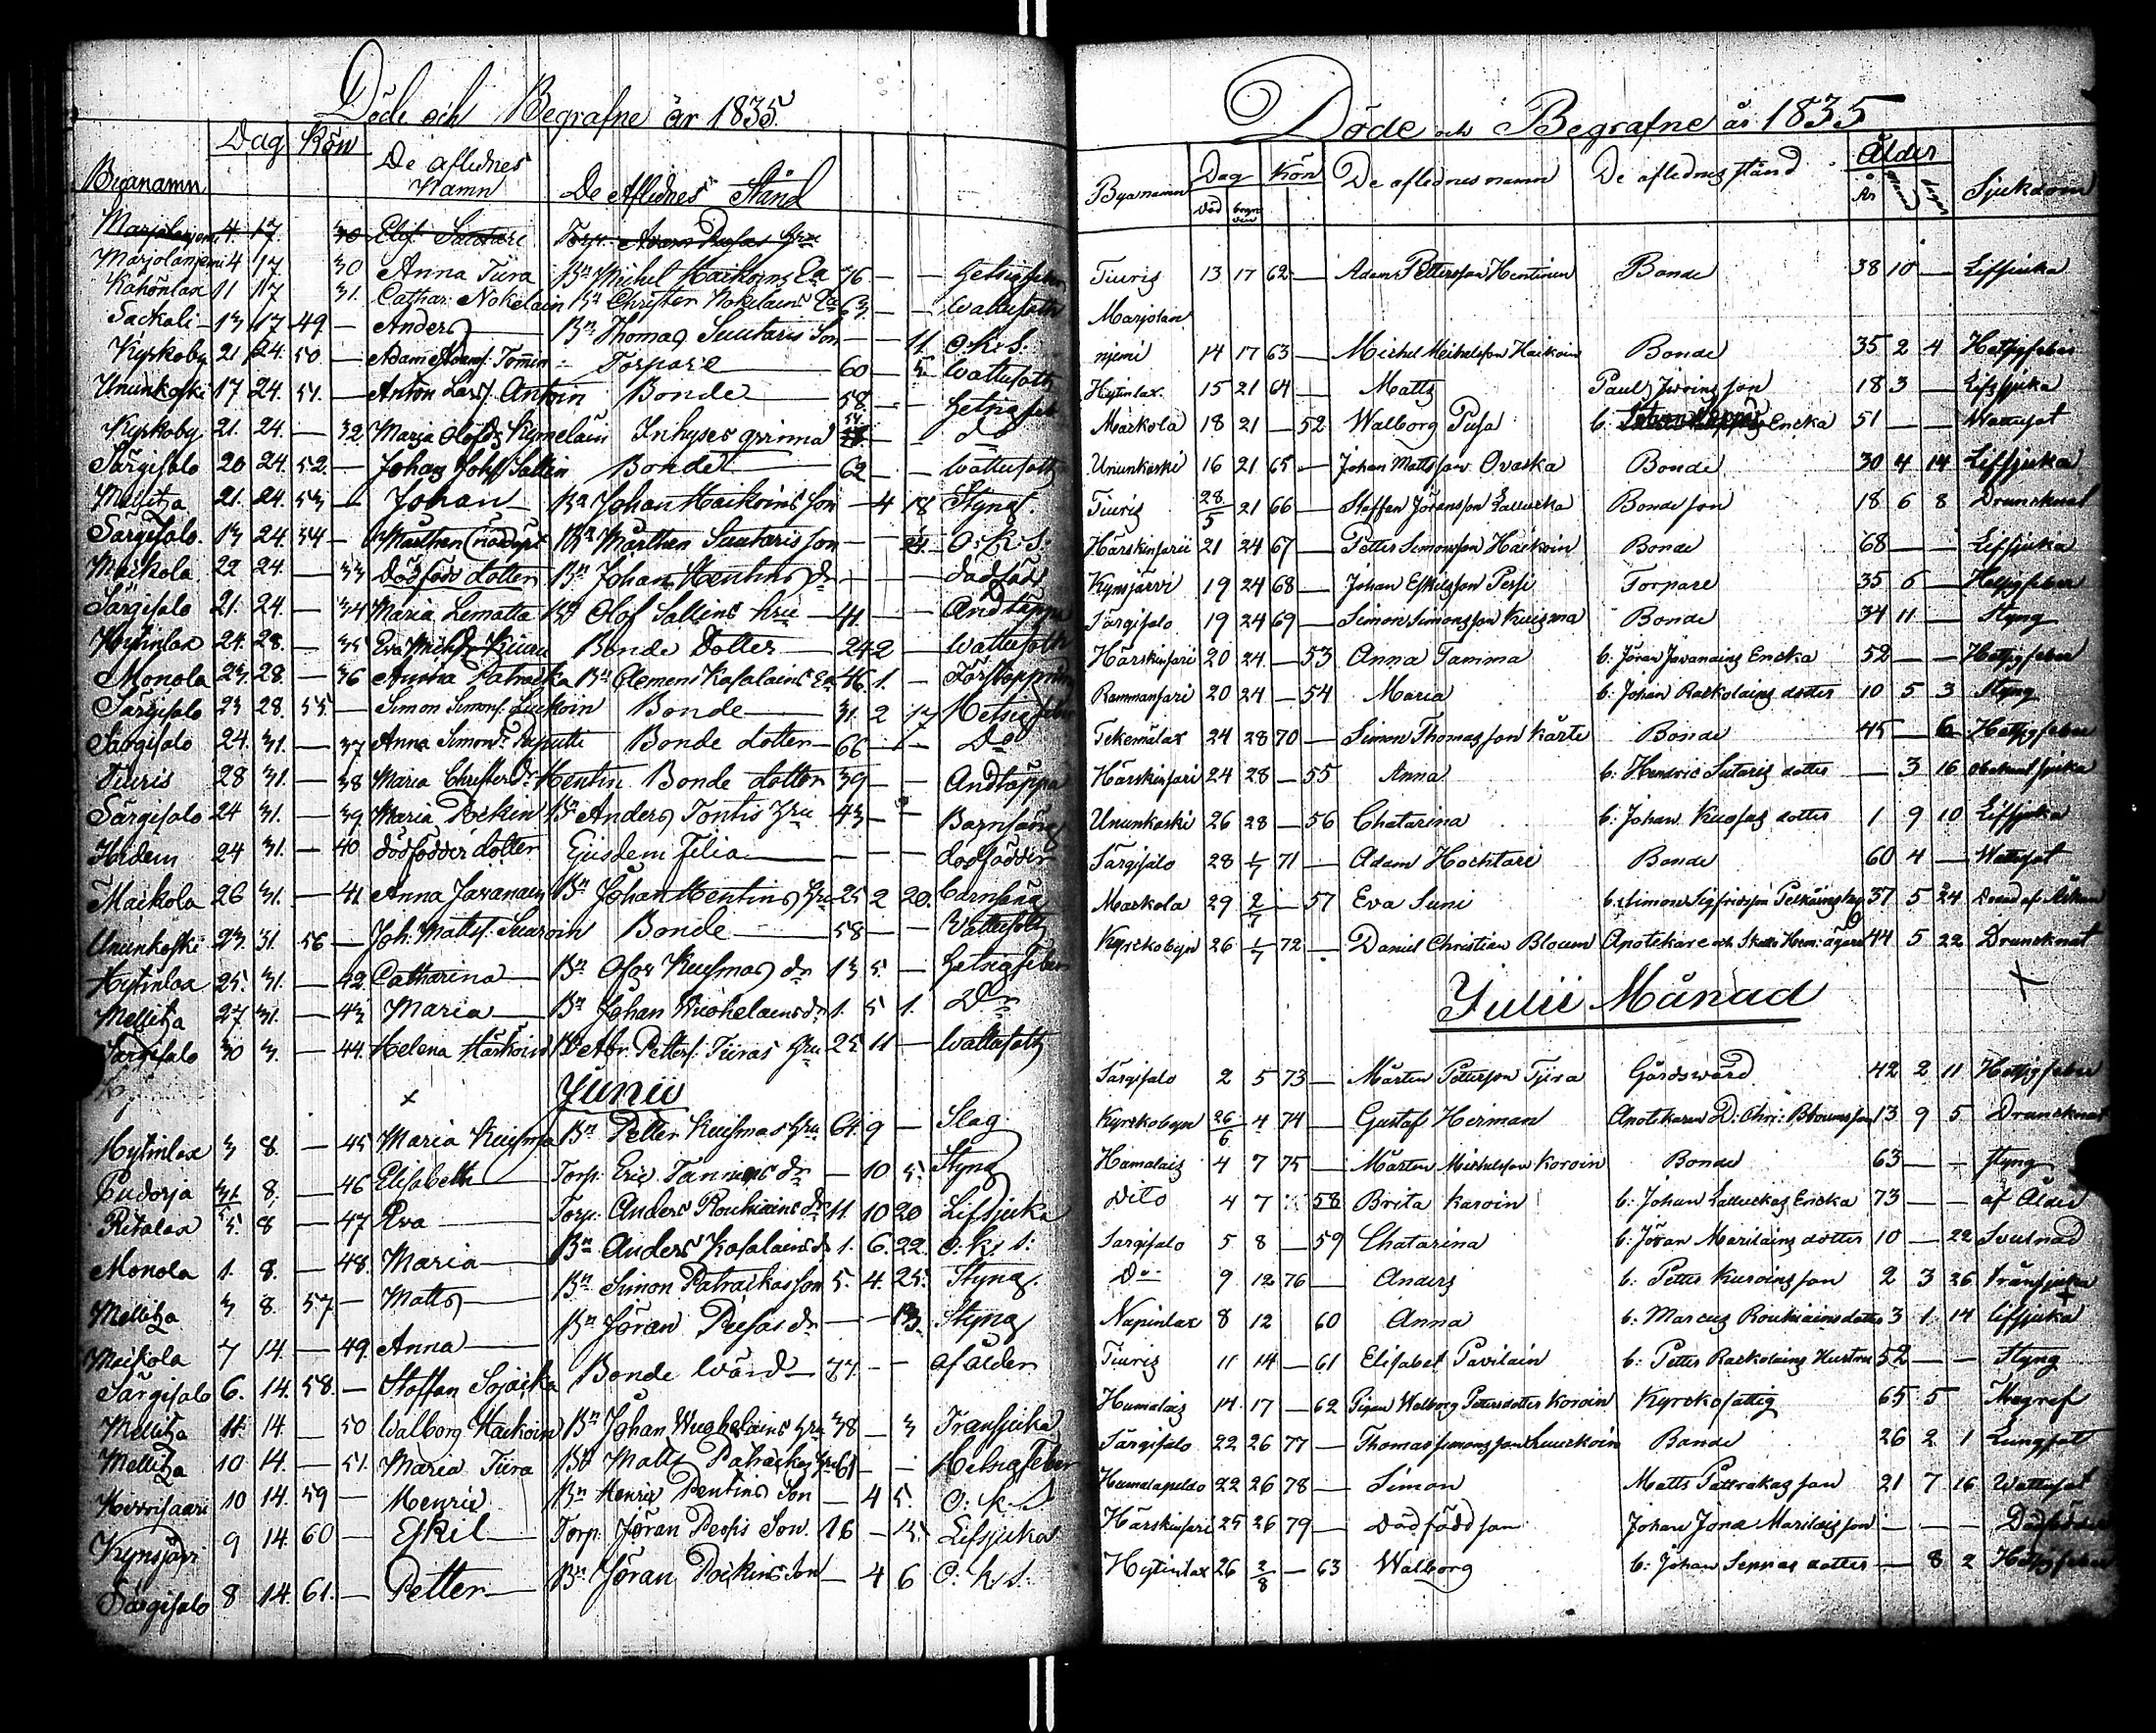 Döde och Begrafne år 1835.
Dag Kön
Byanamn De aflednes Namn De Aflednes Stånd
Marjolanjemi 4. 17. 30 Elis. Suutari Torp.
Marjolanjemi 4 17. 30 Anna Tiira Bn Michel Haikoins Ea 76 — — Hetsigfeber
Kähönlax 11 17 31. Cathar. Nokelain Bn Christer Nokelains Ea 63 — — Wattusoth
Sackali 13 17 49 — Anders Bn Thomas Suutaris Son — — 11. O.K.S.
Kyrkoby 21 24. 50. — Adam Adamss. Tomin Torpare 60 — 5. Wattusoth
Ununkoski 17 24. 51. — Anton Larss. Antoin Bonde 58. — — Hetsigfeb
Kyrkoby 21. 24. — 32 Marja Olofdr Kymeläin Inhyses qvinna — — do
Särgisalo 20 24. 52. — Johan Johss Sallin Bonde 62 — — Wattusoth
Mellitza 21. 24. 53 — Johan Bn Johan Haikoins Son — 4 18 Styng.
Särgisalo. 13 24. 54 — Mårthen (nödöpt Bn Mårthen Suutaris son — — 21. O: K: S:
Maikola 22 24. — 33 Dödföd dotter Bn Johan Hentins dr — — — dödföd
Särgisalo 21. 24. — 34 Maria Lematta Bn Olof Sallins hru 41. — — Andtäppa
Hytinlax 24. 28. — 35 Eva Michdr Kiuru Bonde Dotter 24 2 — Wattusoth
Monola 23. 28. — 36 Anna Patracka Bn Clemens Kasalains Ea 46. 1. — Förstoppning
Särgisalo 23 28. 55. — Simon Simons. Luckoin Bonde 31. 2 17 Hetsigfeber
Särgisalo 24. 31. — 37 Anna Simondr Raputti Bonde dotter 66 — — Do
Tiuris 28 31. — 38 Maria Christerdr Hentin Bonde dotter 39 — — Andtäppa
Särgisalo 24 31. — 39 Maria Pöckin Bn Anders Tontis Hru 43 — — Barnsäng
Ibidem 24 31. — 40 dödfödder dotter Ejusdem filia — — — dödfödder
Maikola 26 31. — 41. Anna Javanain Bn Johan Hentins Hru 25 2 20. barnsäng
Ununkoski 23. 31. 56 — Joh: Mattss. Suaroin Bonde 58 — — Wattusoth
Hytinlax 25. 31. — 42. Catharina Bn Kuismas dr 13 5. — Hetsigfeber
Mellitza 27 31. — 43 Maria Bn Johan Wuohelains dr 1. 5 1. Do
Särgisalo 30 3. — 44. Helena Härkoin Bn Abr. Petterss. Tiiras Hru 25 11 — Wattusoth
Junii
Hytinlax 3 8. — 45 Maria Kuisma Bn Petter Kuismas Hru 64. 9 — Slag.
Pudorja 31/5 8. — 46 Elisabeth Torp. Eric Tannins dr — 10 5. Styng
Ritalax 5. 8 — 47 Eva Torp: Anders Rouhiains dr 11. 10 20 Lifsjuka
Monola 1. 8. — 48. Maria Bn Anders Kasalains dr 1. 6. 22. O: K: S:
Mellitza 3 8. 57 — Matts Bn Simon Patrackas son 5. 4. 25. Styng.
Maikola 7 14. — 49. Anna Bn Jöran Pusas dr — — 13. Styng
Särgisalo 6. 14. 58. — Staffan Sojacka Bonde Wärd 77. — — af ålder
Mellitza 11. 14. — 50 Walborg Haikoin Bn Johan Wuohelains Hru 38 — 3 Transjuka
Mellitza 10 14. — 51. Maria Tiira Bn Matts Patrackas Hru 61 — — Hetsigfeber
Kirvisaari 10 14. 59 — Henric Bn Henric Pentins Son — 4 5. O: K. S
Kynsjärvi 9 14. 60 — Eskil Torp. Jöran Peosis Son. 16 — 15. Lifsjuka
Särgisalo 8 14. 61. — Petter Bn Jöran Pöckins Son — 4 6 O: K: S:
Döde och Begrafne år 1835
Byanamn Dag Kön De aflednes namn De aflednes stånd Ålder Sjukdom
Död begrafven År Månad dagar
Tiuris 13 17 62 — Adam Pettersson Hentinen Bonde 38 10 — Lifsjuka
Marjolan
njemi 14 17 63 — Michel Michelsson Haikoin Bonde 35 2 4 Hetsigfeber
Hytinlax. 15 21 64 — Matts Pauls Jivoins son 18 3 — Lifsjuka
Maikola 18 21 — 52 Walborg Pusa b: Encka 51 — — Wattusot
Ununkoski 16 21 65 — Johan Mattsson Ovaska Bonde 30 4 14 Lifsjuka
Tiuris 28/5 21 66 — Staffan Jöransson Lallucka Bonde son 18 6 8 Drunknat
Härskinsari 21 24 67 — Petter Simonsson Häikoin Bonde 68 — — Lifsjuka
Kynsjärvi 19 24 68 — Johan Eskilsson Persi Torpare 35 6 — Hetsigfeber
Särgisalo 19 24 69 — Simon Simonsson Kuisma Bonde 34 11 — Styng
Härskinsari 20 24 — 53 Anna Tamma b. Jöran Javanains Encka 52 — — Hetsigfeber
Rammansari 20 24 — 54 Maria b: Johan Raskolains dotter 10 5 3 Styng
Tekemälax 24 28 70 — Simon Thomasson Kärte Bonde 45 — 6 Hetsigfeber
Härskinsari 24 28 — 55 Anna b: Hendric Sutaris dotter — 3 16 obekant sjuka
Ununkoski 26 28 — 56 Chatarina b: Johan Kuosas dotter 1 9 10 Lifsjuka
Särgisalo 28 1/7 71 — Adam Hochtari Bonde 60 4 — Wattusot
Maikola 29 2/7 — 57 Eva Suni b: Simon Sigfridsson Pelkäins 37 5 24 Dödd af Åskan
Kyrckobyn 26 1/7 72 — Daniel Christian Bloum Apotekare och Skatte Hem: ägare 44 5 22 Drunknat
Julii Månad
Särgisalo 2 5 73 — Mårten Pettersson Tjira Gårdswärd 42 2 11 Hetsigfeber
Kyrckobyn 26/6 4 74 — Gustaf Herman Apotekaren D: Chr: Bloums son 13 9 5 Drunknat
Hamalais 4 7 75 — Mårten Michelsson Koroin Bonde 63 — — Styng
Dito 4 7 58 Brita Karoin b: Johan Lalluckas Encka 73 — — af Ålder
Särgisalo 5 8 — 59 Chatarina b: Jöran Marilains dotter 10 — 22 Svulnad
Do 9 12 76 — Anders b: Petter Kuroins son 2 3 26 Transjuka
Napinlax 8 12 60 Anna b: Marcus Rouhiains dotter 3 1 14 lifsjuka
Tiuris 11 14 — 61 Elisabet Pavilain b: Petter Raskolains Hustru 52 — — Styng
Humalais 14 17 — 62 Pigan Walborg Pettersdotter Koroin Kyrckofattig 65 5 Magref
Särgisalo 22 26 77 — Thomas Simonsson Luuckoin Bonde 26 2 1 Lungsot
Humalapeldo 22 26 78 — Simon Matts Pattrakas son 21 7 16 Wattusot
Härskinsari 25 26 79 — Dödfödd son Johan Jöna Marilais son — — — Dödfödd
Hytinlax 26 2/8 — 63 Walborg b: Johan Seppas dotter — 8 2 Hetsigfeber